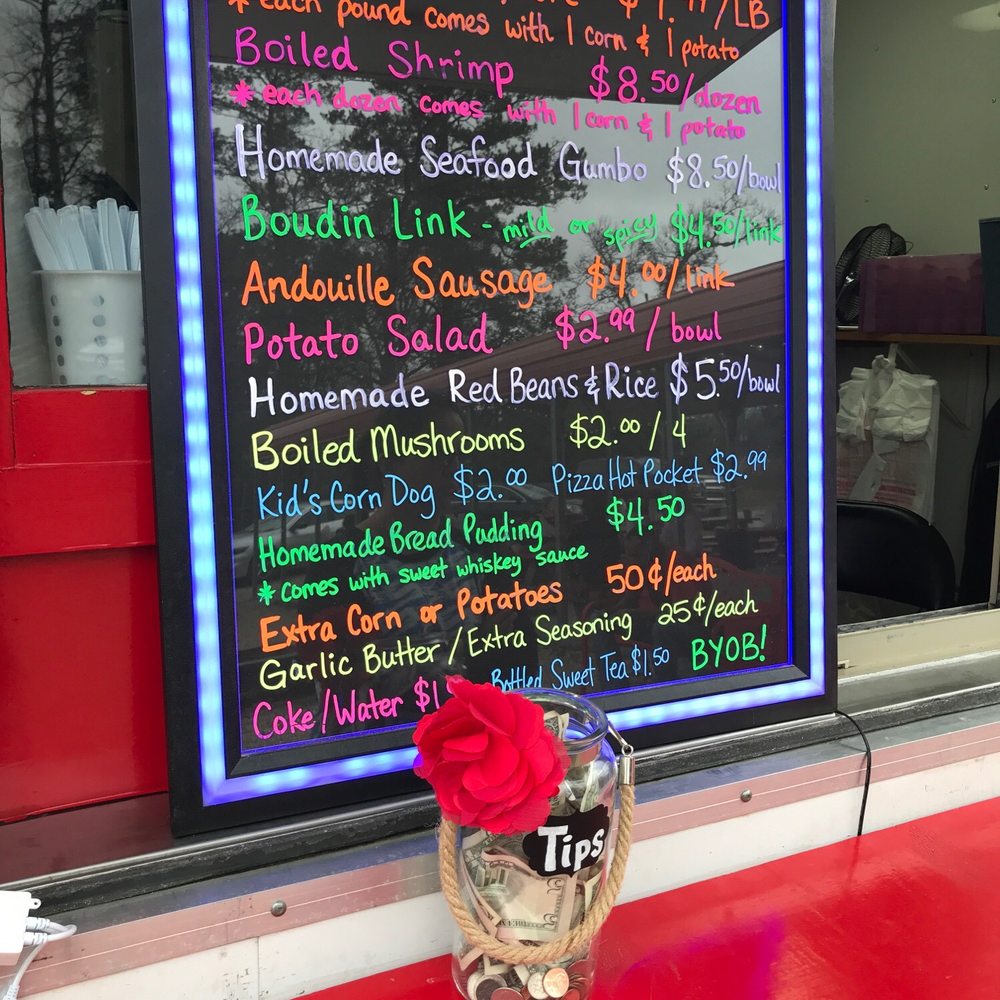 * each pound comes with 1 corn & 1 potato /LB
Boiled Shrimp $8.50/dozen
* each dozen comes with 1 corn & 1 potato
Homemade Seafood Gumbo $8.50/bowl
Boudin Link - mild or spicy $4.50/link
Andouille Sausage $4.00/link
Potato Salad $2.99 / bowl
Homemade Red Beans & Rice $5.50/bowl
Boiled Mushrooms $2.00 / 4
Kid's Corn Dog $2.00 Pizza Hot Pocket $2.99
Homemade Bread Pudding $4.50
* comes with sweet whiskey sauce
Extra Corn or Potatoes 50¢/each
Garlic Butter / Extra Seasoning 25¢/each
Coke/Water $1 Bottled Sweet Tea $1.50 BYOB!
Tips